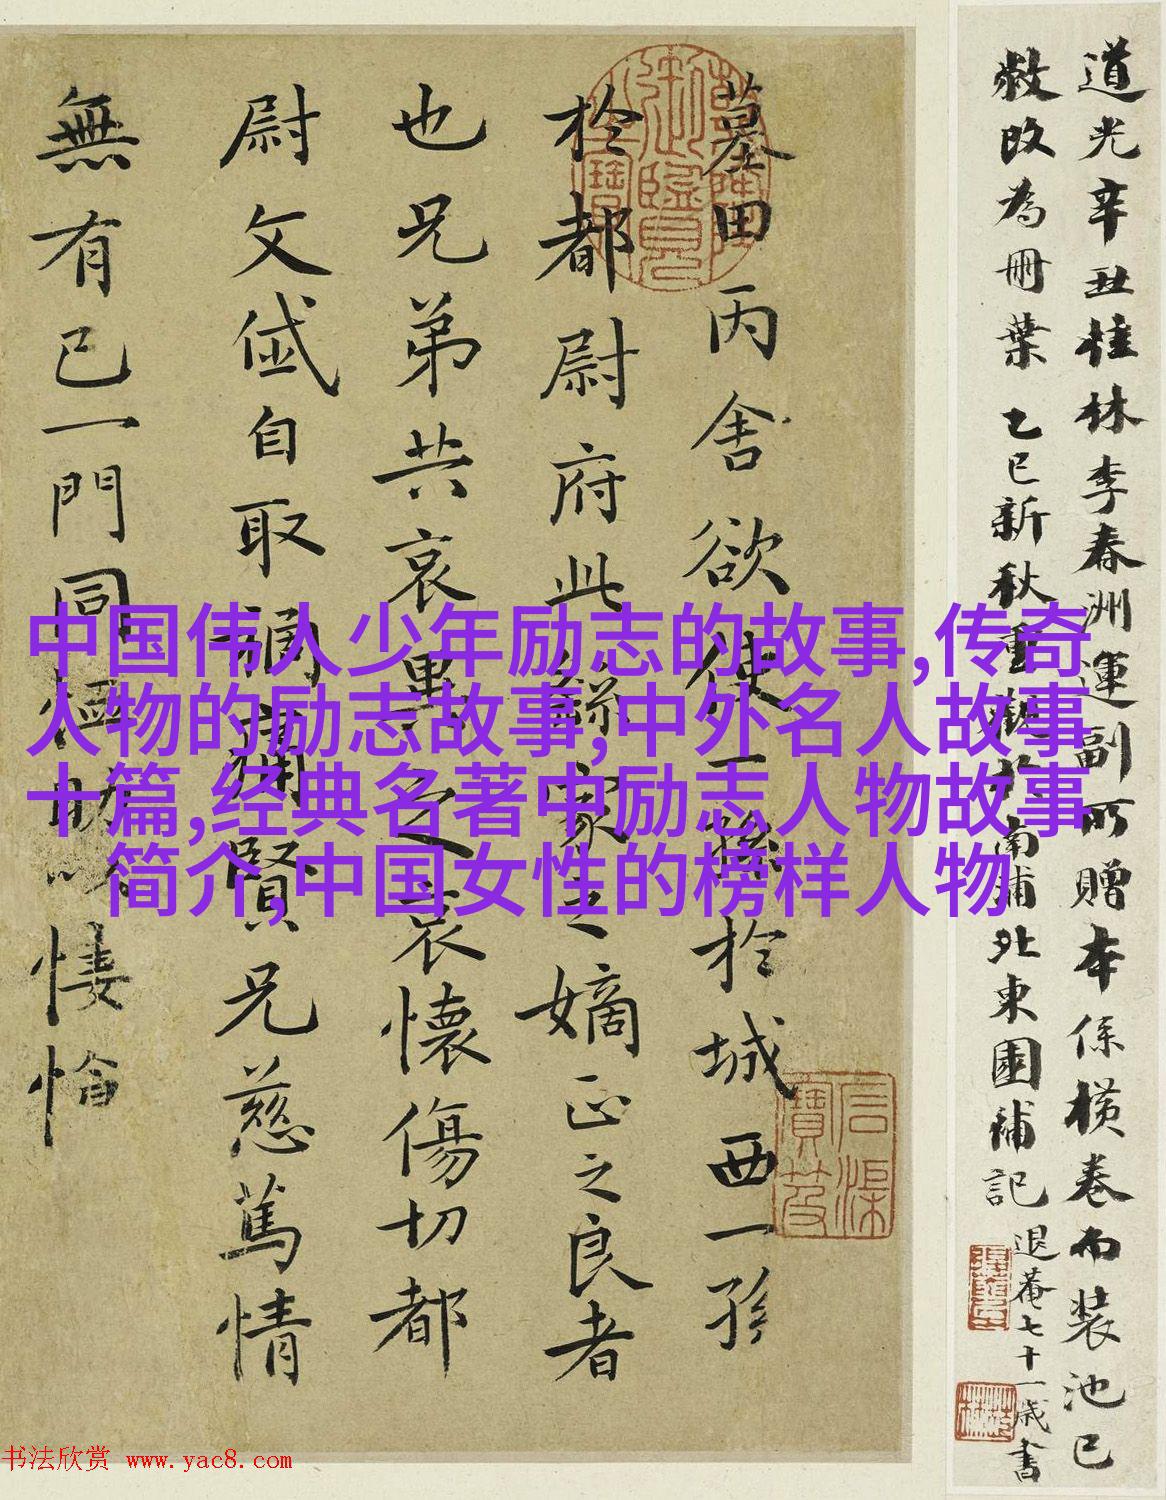 道光辛丑桂林李春洲運副所贈本係横卷而装池已
敝改為冊葉 乙巳新秋重觀於南浦北東園補記 退菴七十一歲書
墓田丙舍欲使一孫於城西一孫
於都尉府此繇家之嫡正之良者
也兄弟共哀異之哀懷傷切都
尉文岱自取禍痛賢兄慈篤情
無有已一門同恤助以悽愴
中国伟人少年励志的故事,传奇
人物的励志故事,中外名人故事
十篇,经典名著中励志人物故事
简介,中国女性的榜样人物
书法欣赏 www.yac8.com